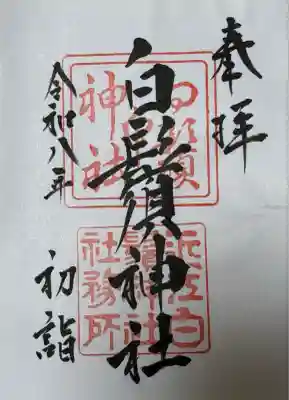 奉拝
白鬚神社
令和八年
初詣
白鬚
神社
近江白
鬚神社
社務所